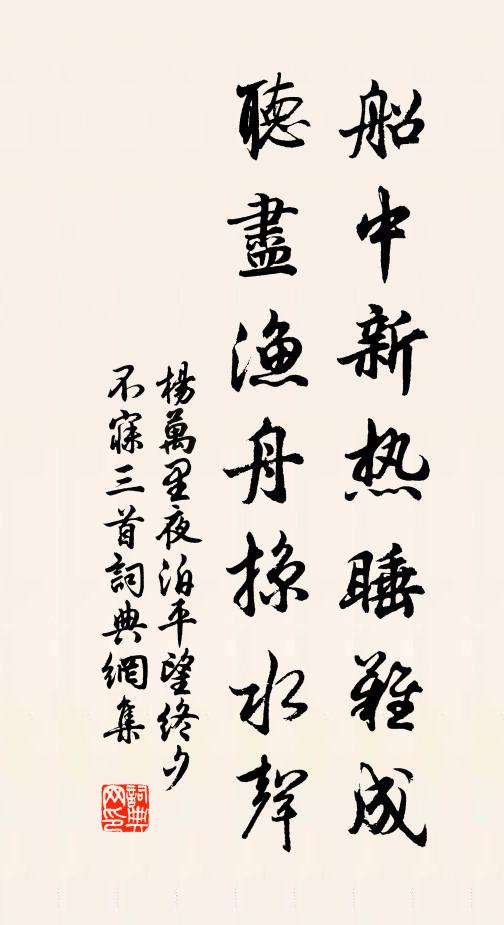 船中新热睡難成
聽盡漁舟掠水聲
楊萬里夜泊平望終夕
不寐三首詞典網集
詞典
网印